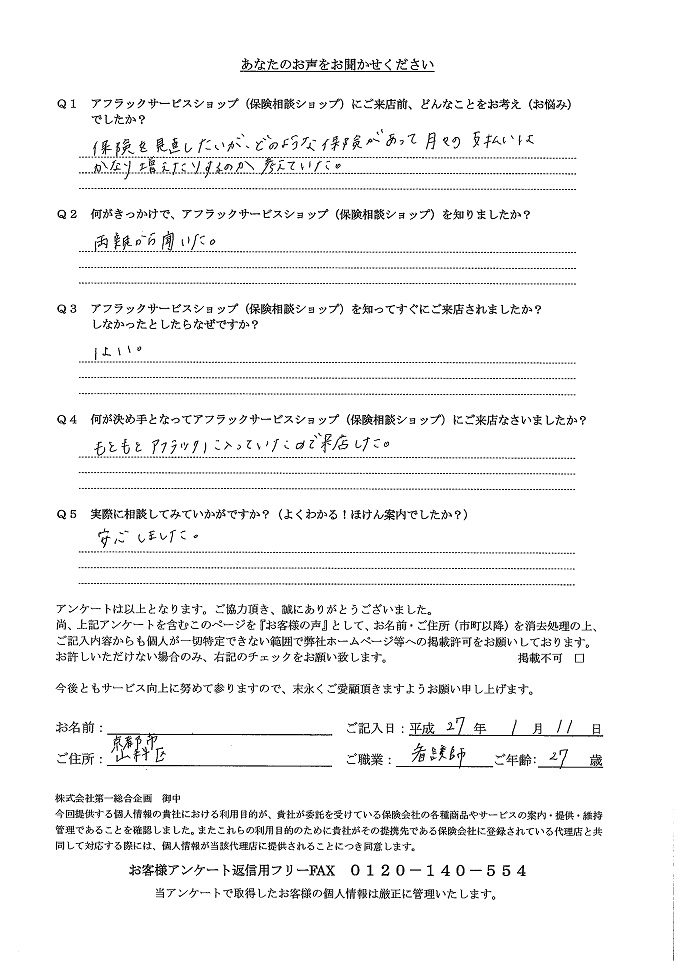 あなたのお声をお聞かせください
Q1 アフラックサービスショップ（保険相談ショップ）にご来店前、どんなことをお考え（お悩み）
でしたか？
保険を見直したいが、どのような保険があって月々の支払いは
かなり増えたりするのか考えていた。
Q2 何がきっかけで、アフラックサービスショップ（保険相談ショップ）を知りましたか？
両親から聞いた。
Q3 アフラックサービスショップ（保険相談ショップ）を知ってすぐにご来店されましたか？
しなかったとしたらなぜですか？
はい。
Q4 何が決め手となってアフラックサービスショップ（保険相談ショップ）にご来店なさいましたか？
もともとアフラックに入っていたので来店した。
Q5 実際に相談してみていかがですか？（よくわかる！ほけん案内でしたか？）
安心しました。
アンケートは以上となります。ご協力頂き、誠にありがとうございました。
尚、上記アンケートを含むこのページを『お客様の声』として、お名前・ご住所（市町以降）を消去処理の上、
ご記入内容からも個人が一切特定できない範囲で弊社ホームページ等への掲載許可をお願いしております。
お許しいただけない場合のみ、右記のチェックをお願い致します。 掲載不可 □
今後ともサービス向上に努めて参りますので、末永くご愛顧頂きますようお願い申し上げます。
お名前： ご記入日：平成 27 年 1 月 11 日
京都市
ご住所： 山科区 ご職業： 看護師 ご年齢： 27 歳
株式会社第一総合企画 御中
今回提供する個人情報の貴社における利用目的が、貴社が委託を受けている保険会社の各種商品やサービスの案内・提供・維持
管理であることを確認しました。またこれらの利用目的のために貴社がその提携先である保険会社に登録されている代理店と共
同して対応する際には、個人情報が当該代理店に提供されることにつき同意します。
お客様アンケート返信用フリーFAX 0120－140－554
当アンケートで取得したお客様の個人情報は厳正に管理いたします。